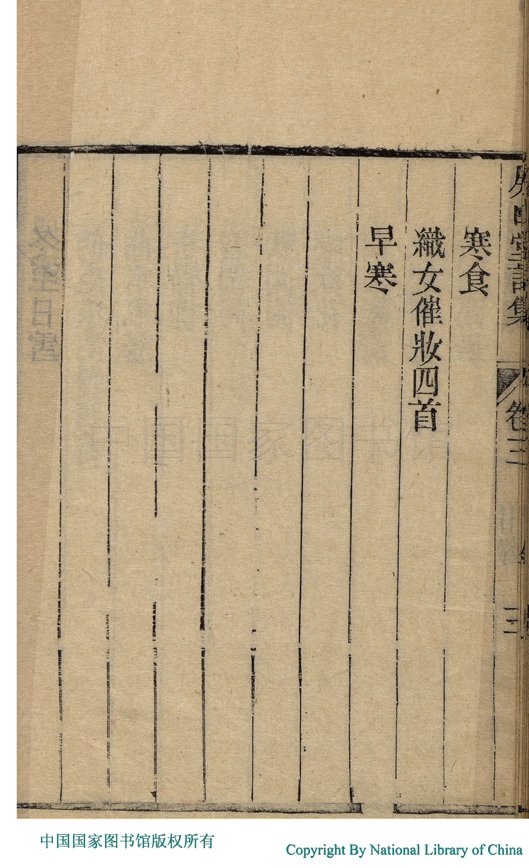 堂詩集 卷三 三
寒食
織女催妝四首
早寒
中国国家图书馆
中国国家图书馆版权所有
Copyright By National Library of China